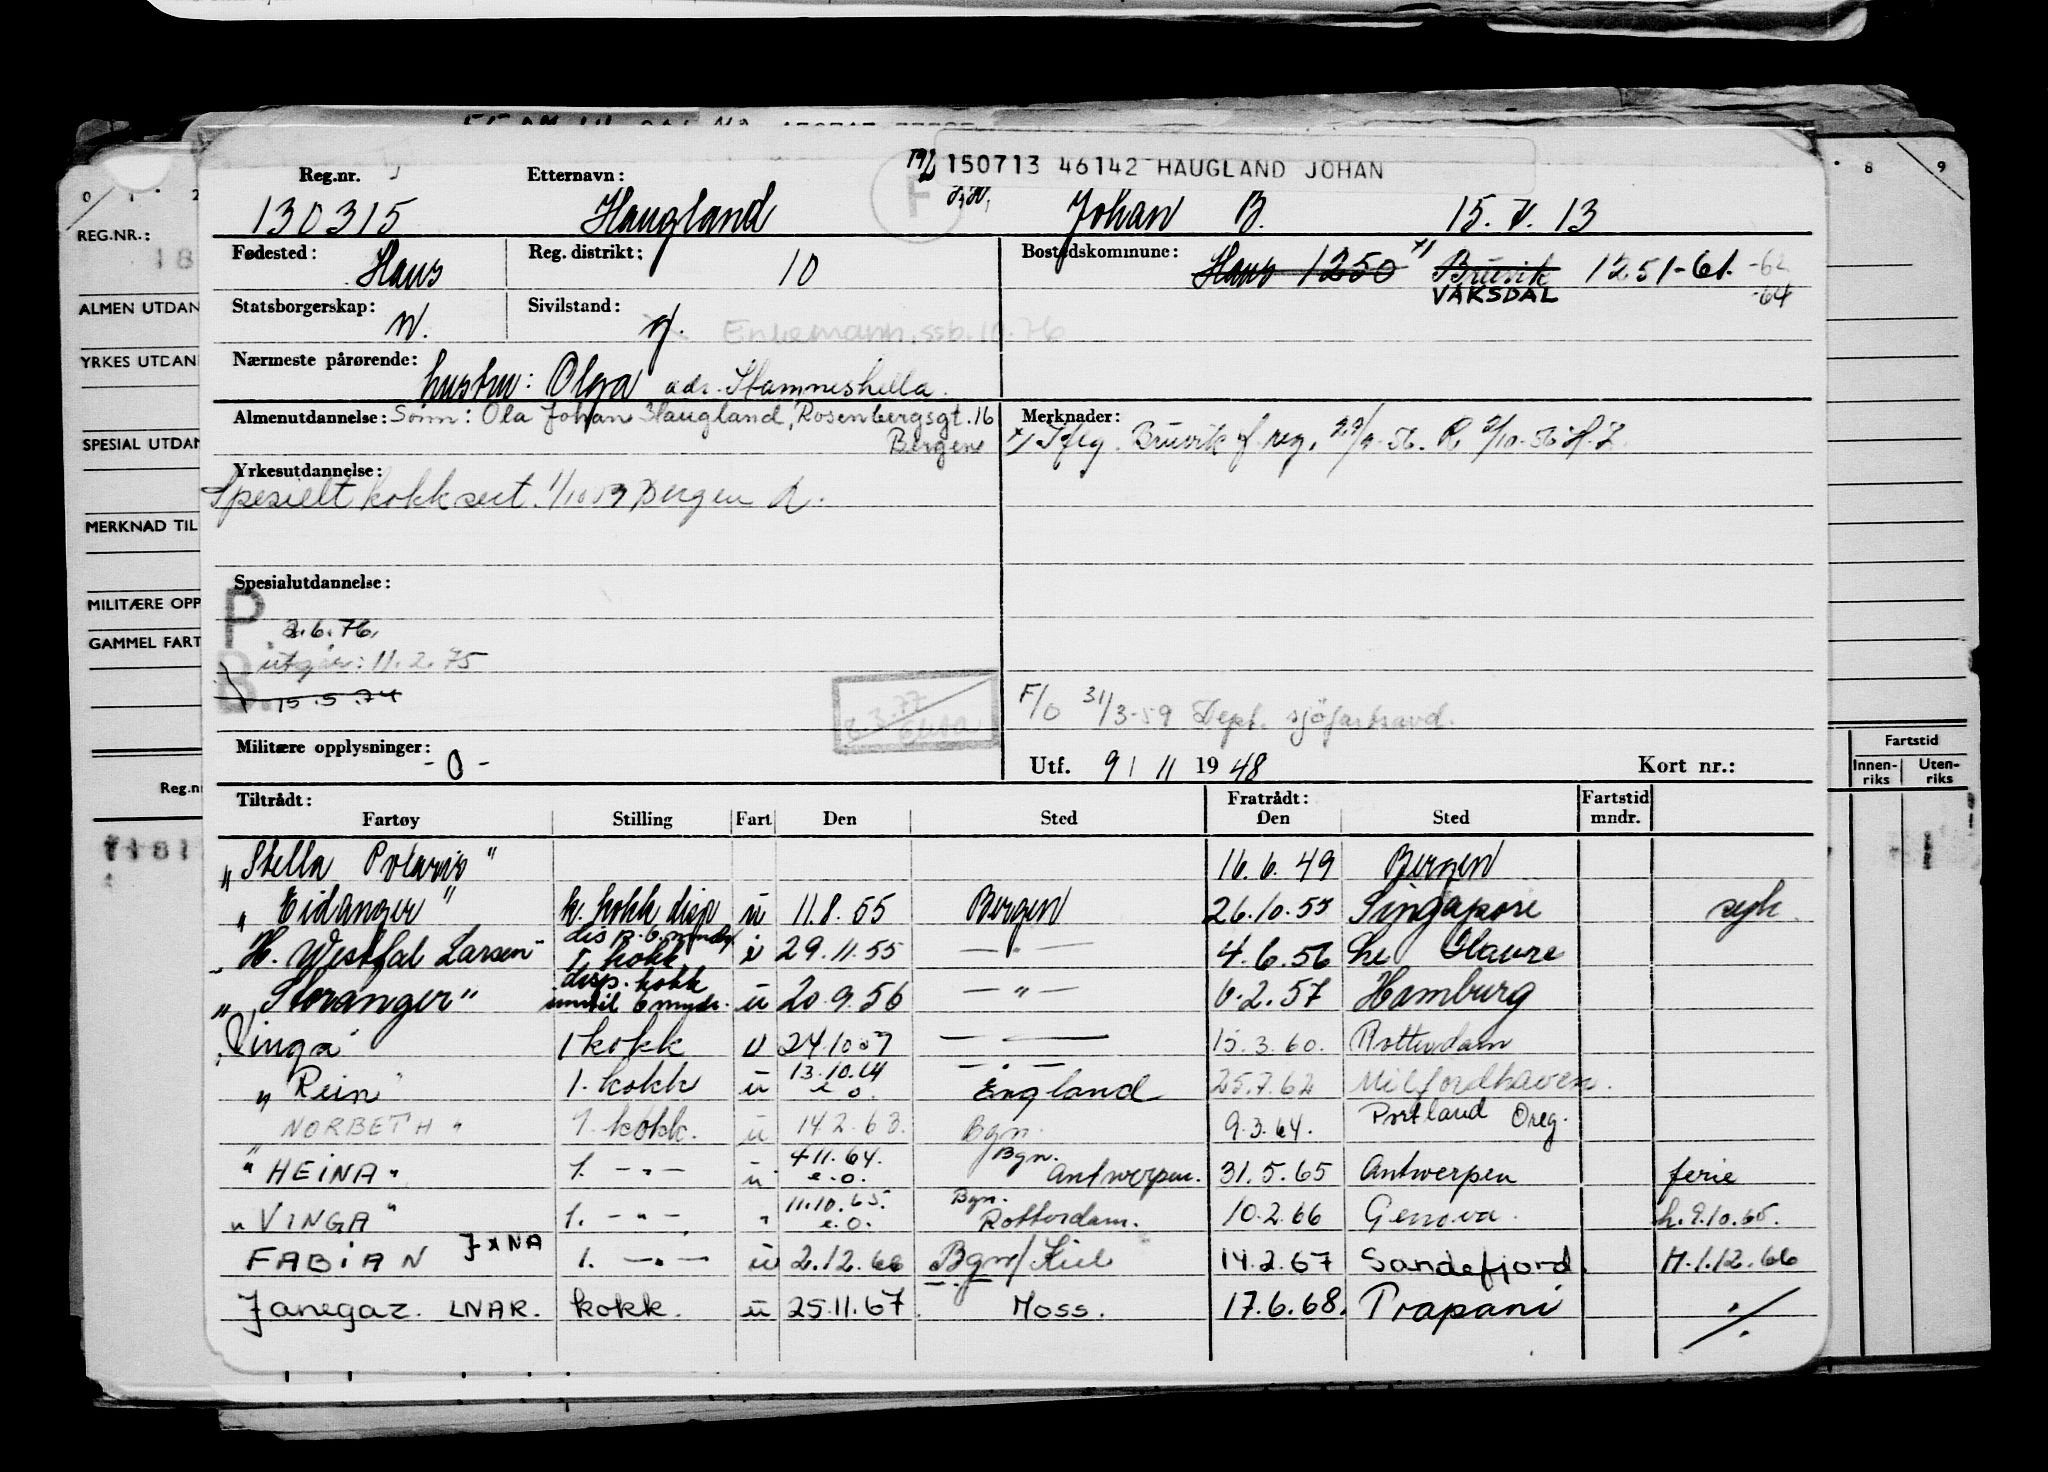 150713 46142 HAUGLAND JOHAN
Reg.nr. Etternavn:
130315 Haugland Johan B. 15. V. 13
Fødested: Haus Reg. distrikt: 10 Bostedskommune: Haus 1250 x/ Bruvik 1251-61. -62
VAKSDAL -64
Statsborgerskap: n. Sivilstand: g. Enkemann, ssb. 10.76
Nærmeste pårørende: hustru: Olga adr. Stamneshella.
Almenutdannelse: Sønn: Ola Johan Haugland, Rosenbergsgt. 16
Bergen
Merknader:
x/ Iflg. Bruvik f. reg. 29/9-56. R. 2/10-56 H.L.
Yrkesutdannelse:
Spesielt kokksert. 1/10 59 Bergen
Spesialutdannelse:
P. 2.6.76.
utgår: 11.2.75
B. 15.5.74
F/O 31/3-59 Dept. sjøfartsavd.
Militære opplysninger: -0-
Utf. 9/11 1948 Kort nr.:
Tiltrådt: Fratrådt: Fartstid
Fartøy Stilling Fart Den Sted Den Sted mndr.
"Stella Polaris" 16.6.49 Bergen
"Eidanger" k. kokk disp u 11.8.55 Bergen 26.10.55 Singapore syk.
"H. Westfal Larsen" disp. 6 mndr. 1. kokk u 29.11.55 — " — 4.6.56 Le Havre
"Storanger" disp. kokk inntil 6 mndr. u 20.9.56 — " — 6.2.57 Hamburg
"Vinga" 1 kokk u 24.10 59 — " — 15.3.60. Rotterdam
"Rein" 1. kokk u 13.10.61 e.o. — " — England 25.7.62 Milfordhaven.
"NORBETH" 1. kokk. u 14.2.63. Bgn. 9.3.64. Portland Oreg.
"HEINA" 1. — " — u 4.11.64. e.o. Bgn. Antwerpen. 31.5.65 Antwerpen ferie
"VINGA" 1. — " — " 11.10.65. e.o. Bgn. Rotterdam. 10.2.66 Genova. h. 9.10.65.
FABIAN JXNA 1. — " — u 2.12.66 Bgn/Kiel 14.2.67 Sandefjord. H. 1.12.66
Janegaz. LNAR. kokk. u 25.11.67. Moss. 17.6.68. Trapani ./.
REG.NR.:
ALMEN UTDAN
YRKES UTDAN
SPESIAL UTDAN
MERKNAD TIL
MILITÆRE OPP
GAMMEL FART
Reg.n
0 1 2 8 9
Fartstid
Innen-riks Uten-riks